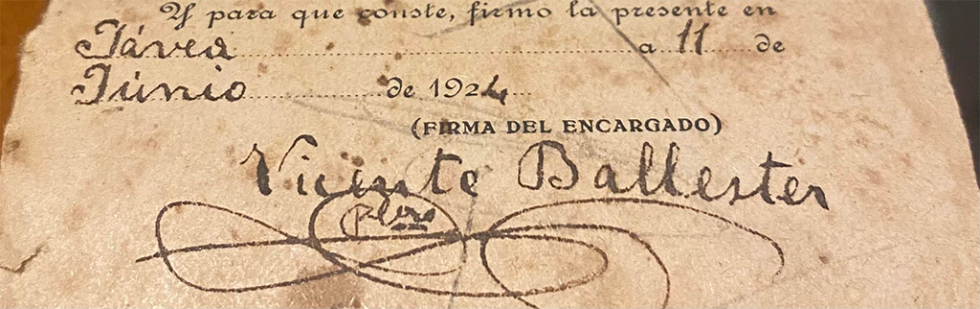 Y para que conste, firmo la presente en
Jávea a 11 de
Júnio de 1924
(FIRMA DEL ENCARGADO)
Vicente Ballester